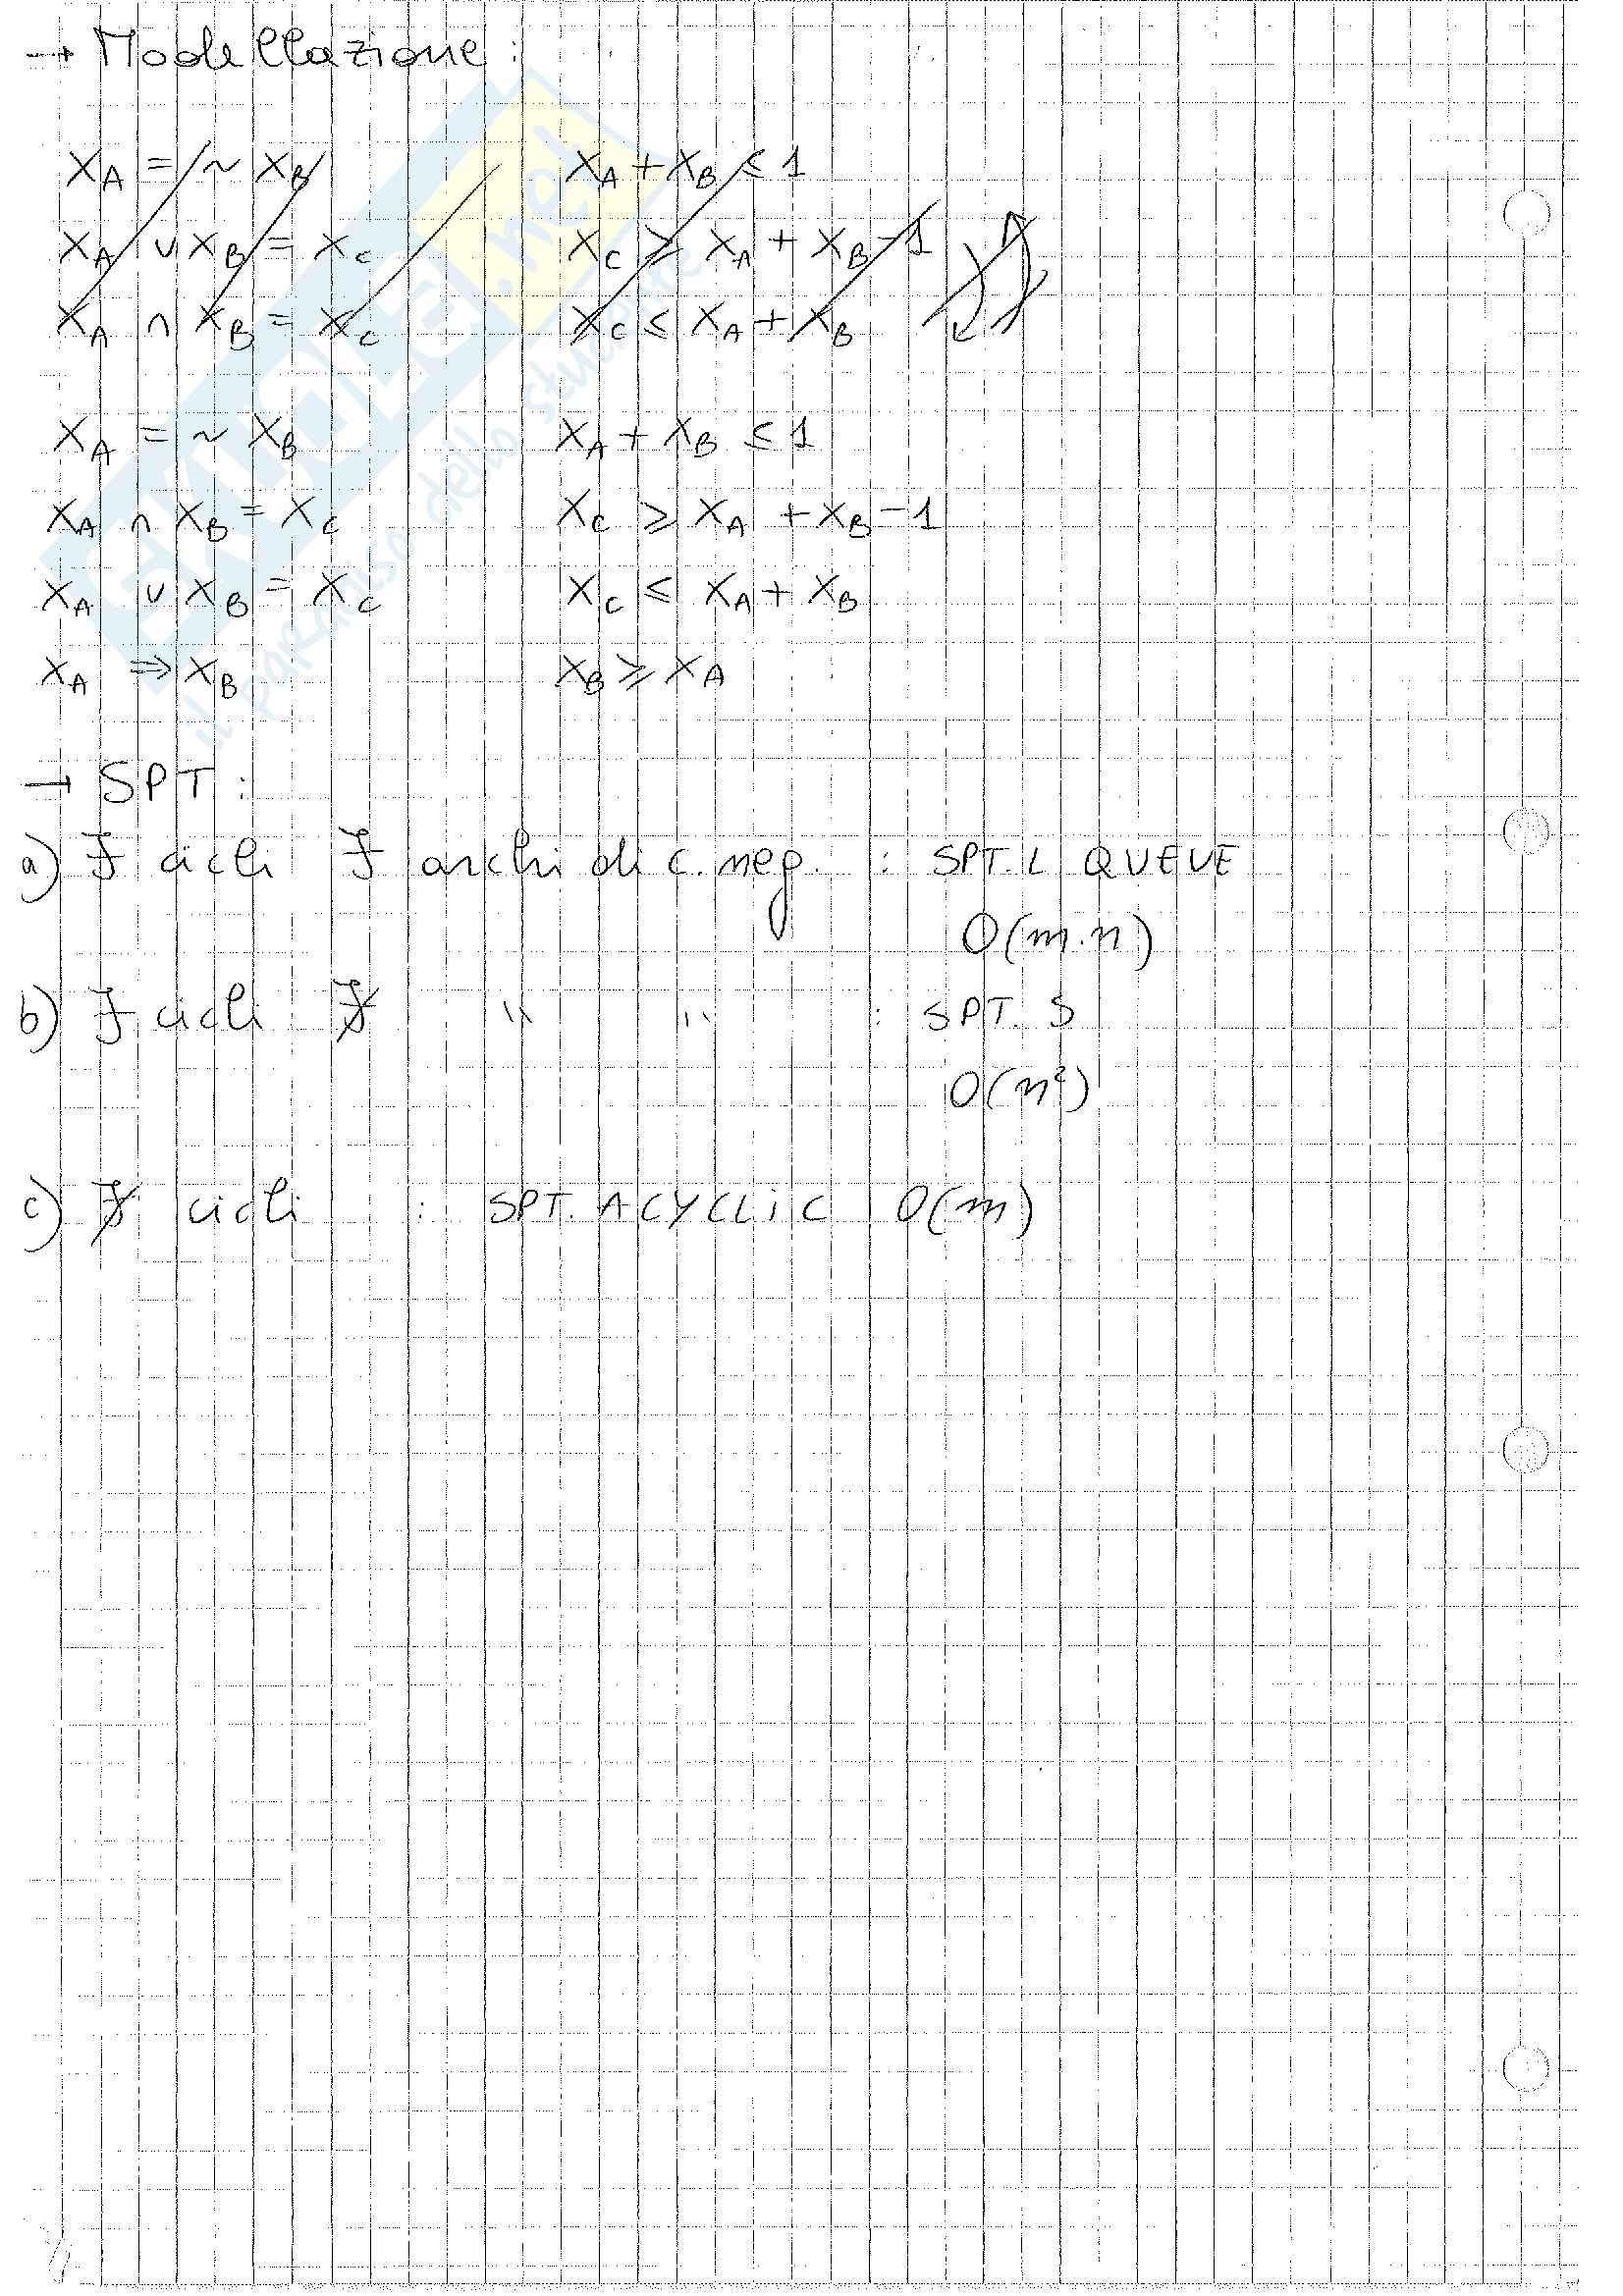 → Modellazione :
X_A = ~ X_B X_A + X_B ≤ 1
X_A ∨ X_B = X_C X_C ≥ X_A + X_B - 1
X_A ∩ X_B = X_C X_C ≤ X_A + X_B
X_A = ~ X_B X_A + X_B ≤ 1
X_A ∩ X_B = X_C X_C ≥ X_A + X_B - 1
X_A ∪ X_B = X_C X_C ≤ X_A + X_B
X_A ⇒ X_B X_B ≥ X_A
→ SPT :
a) ∃ cicli ∃ archi di c. neg. : SPT. L QUEUE
O(m·n)
b) ∃ cicli ∄ " " : SPT. S
O(n²)
c) ∄ cicli : SPT. ACYCLIC O(m)
il paradiso dello studente